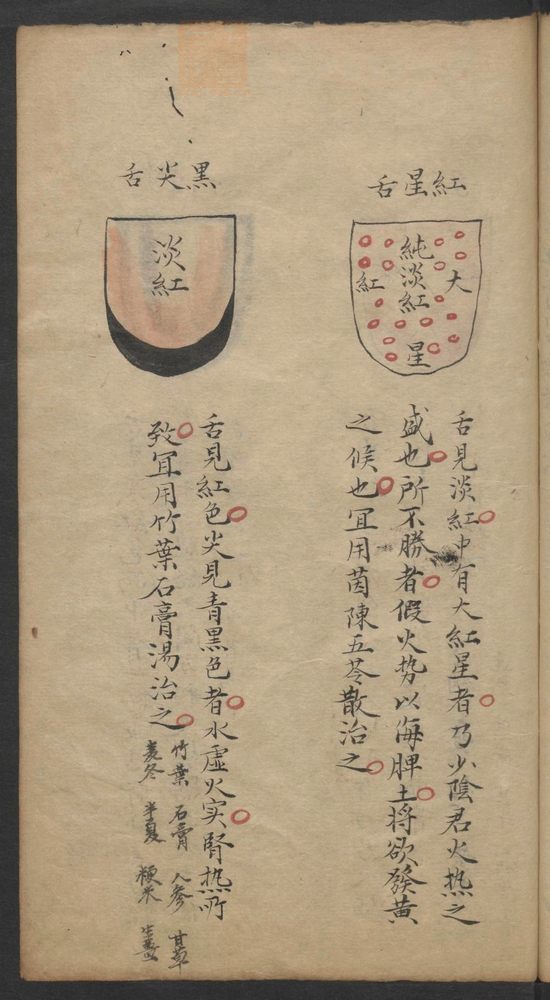 紅星舌
純淡紅
大
紅
星
舌見淡紅中有大紅星者乃少陰君火热之
盛也所不勝者假火势以海脾土将欲發黄
之候也宜用茵陳五苓散治之
黑尖舌
淡紅
舌見紅色尖見青黑色者水虚火实腎热所
致宜用竹葉石膏湯治之
竹葉 石膏 人参 甘草
麦冬 半夏 粳米 生姜